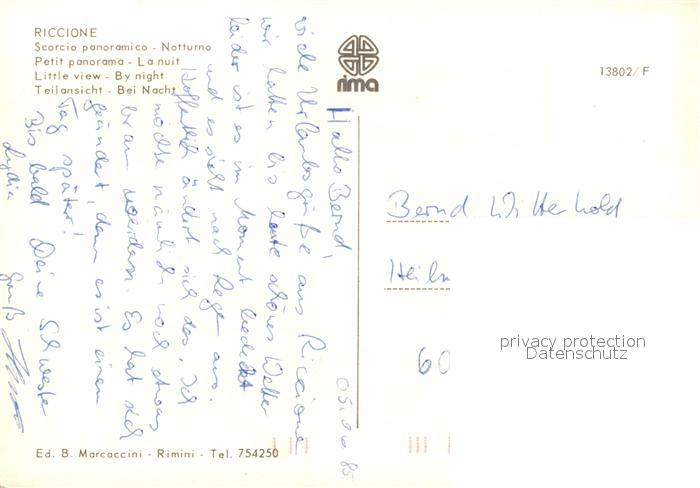 RICCIONE
Scorcio panoramico - Notturno
Petit panorama - La nuit
Little view - By night
Teilansicht - Bei Nacht
rima
13802/F
Hallo Bernd,
viele Urlaubsgrüße aus Riccione
wir hatten bis heute schönes Wetter
leider ist es im Moment bedeckt
und es sieht nach Regen aus.
Hoffentlich ändert sich das. Ich
möchte nämlich noch etwas
braun werden. Es hat sich
geändert, denn es ist einen
Tag später!
Bis bald Deine Schwester
Lydia
Gruß
05.06.85
Bernd Wittekold
Heil
60
privacy protection
Datenschutz
Ed. B. Marcaccini - Rimini - Tel. 754250